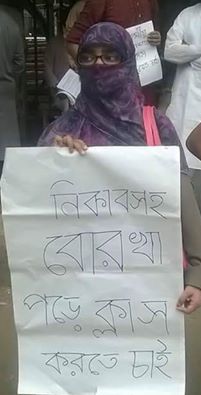 নিকাবসহ
বোরখা
পড়ে ক্লাস
করতে চাই